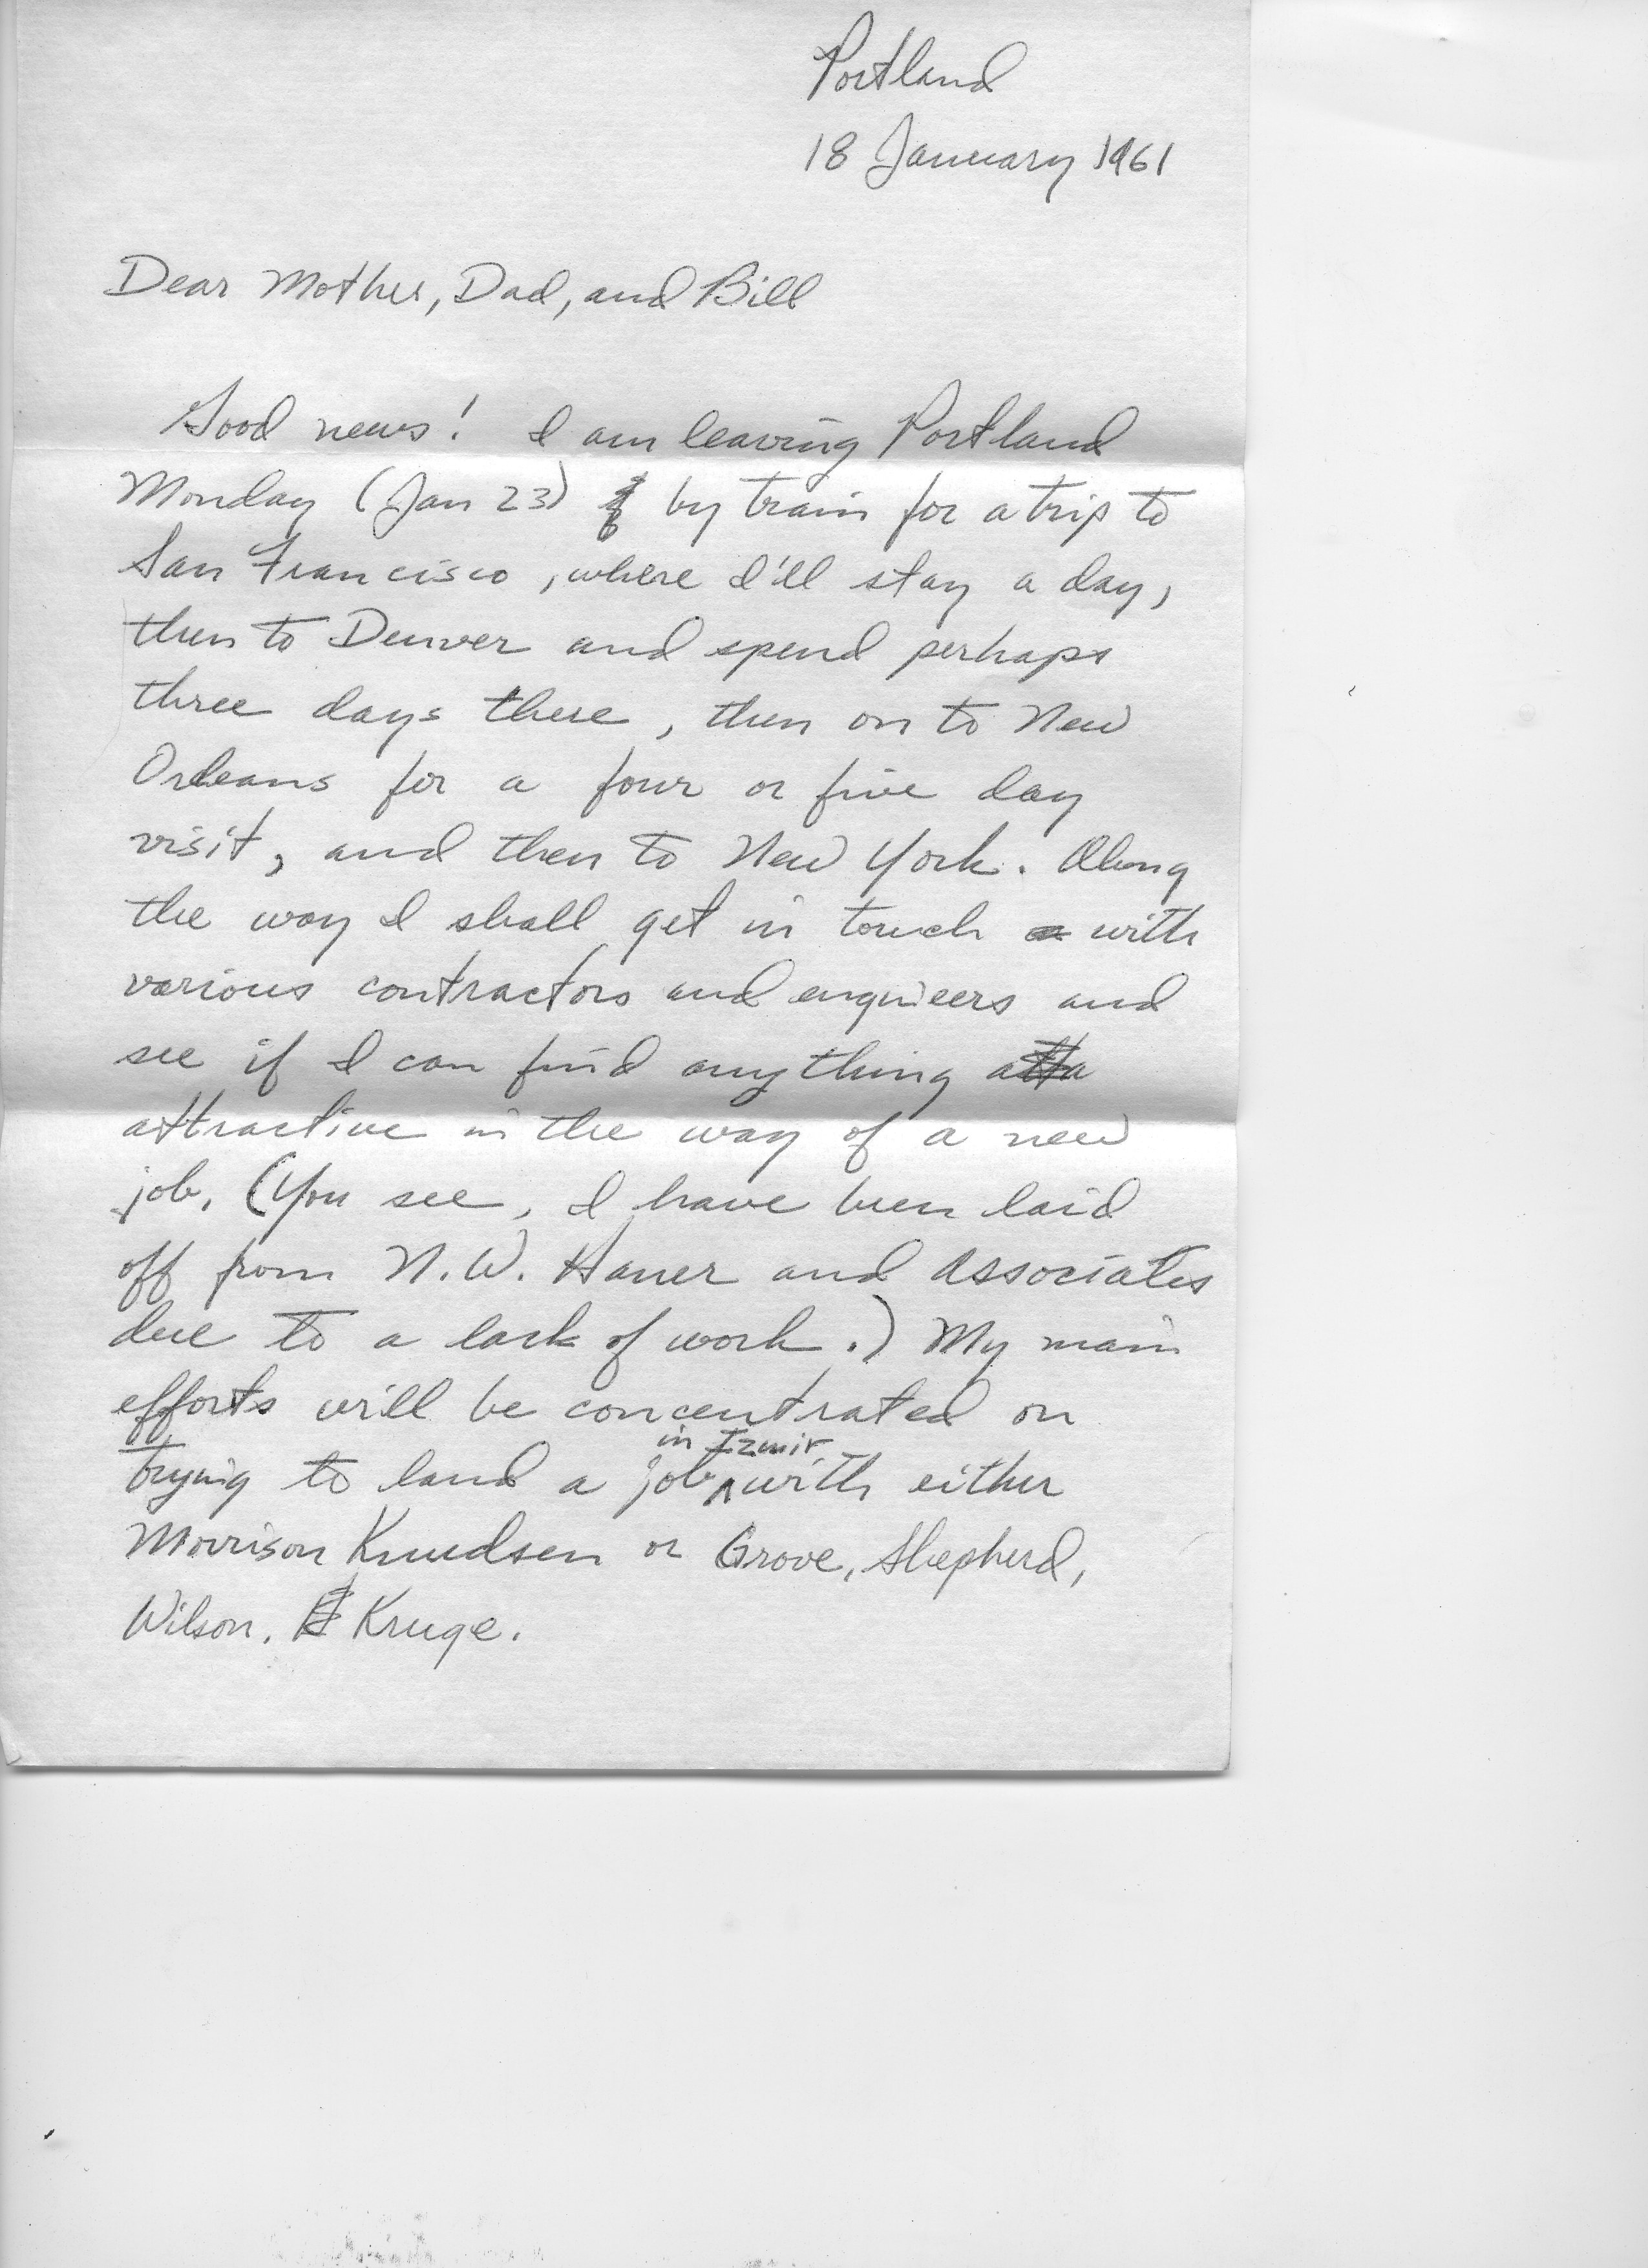 Portland
18 January 1961
Dear Mother, Dad, and Bill
Good news! I am leaving Portland
Monday (Jan 23) by train for a trip to
San Francisco, where I'll stay a day,
then to Denver and spend perhaps
three days there, then on to New
Orleans for a four or five day
visit, and then to New York. Along
the way I shall get in touch with
various contractors and engineers and
see if I can find anything atta
attractive in the way of a new
job. (You see, I have been laid
off from N.W. Haner and Associates
due to a lack of work.) My main
efforts will be concentrated on
in Izmir
trying to land a job ^ with either
Morrison Knudsen or Grove, Shepherd,
Wilson, & Kruge.